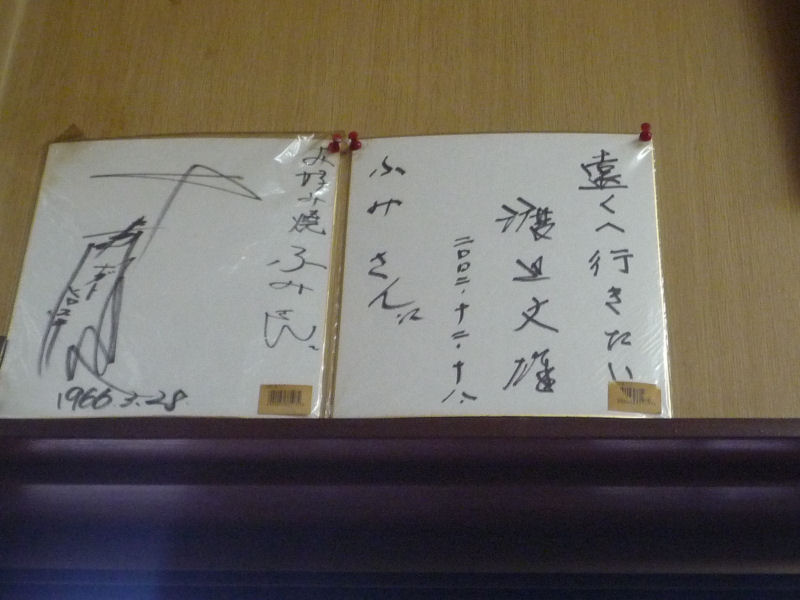 遠くへ行きたい
渡辺文雄
二〇〇二・十二・十八
ふみさんに
お好み焼 ふみさん
1966 3.28